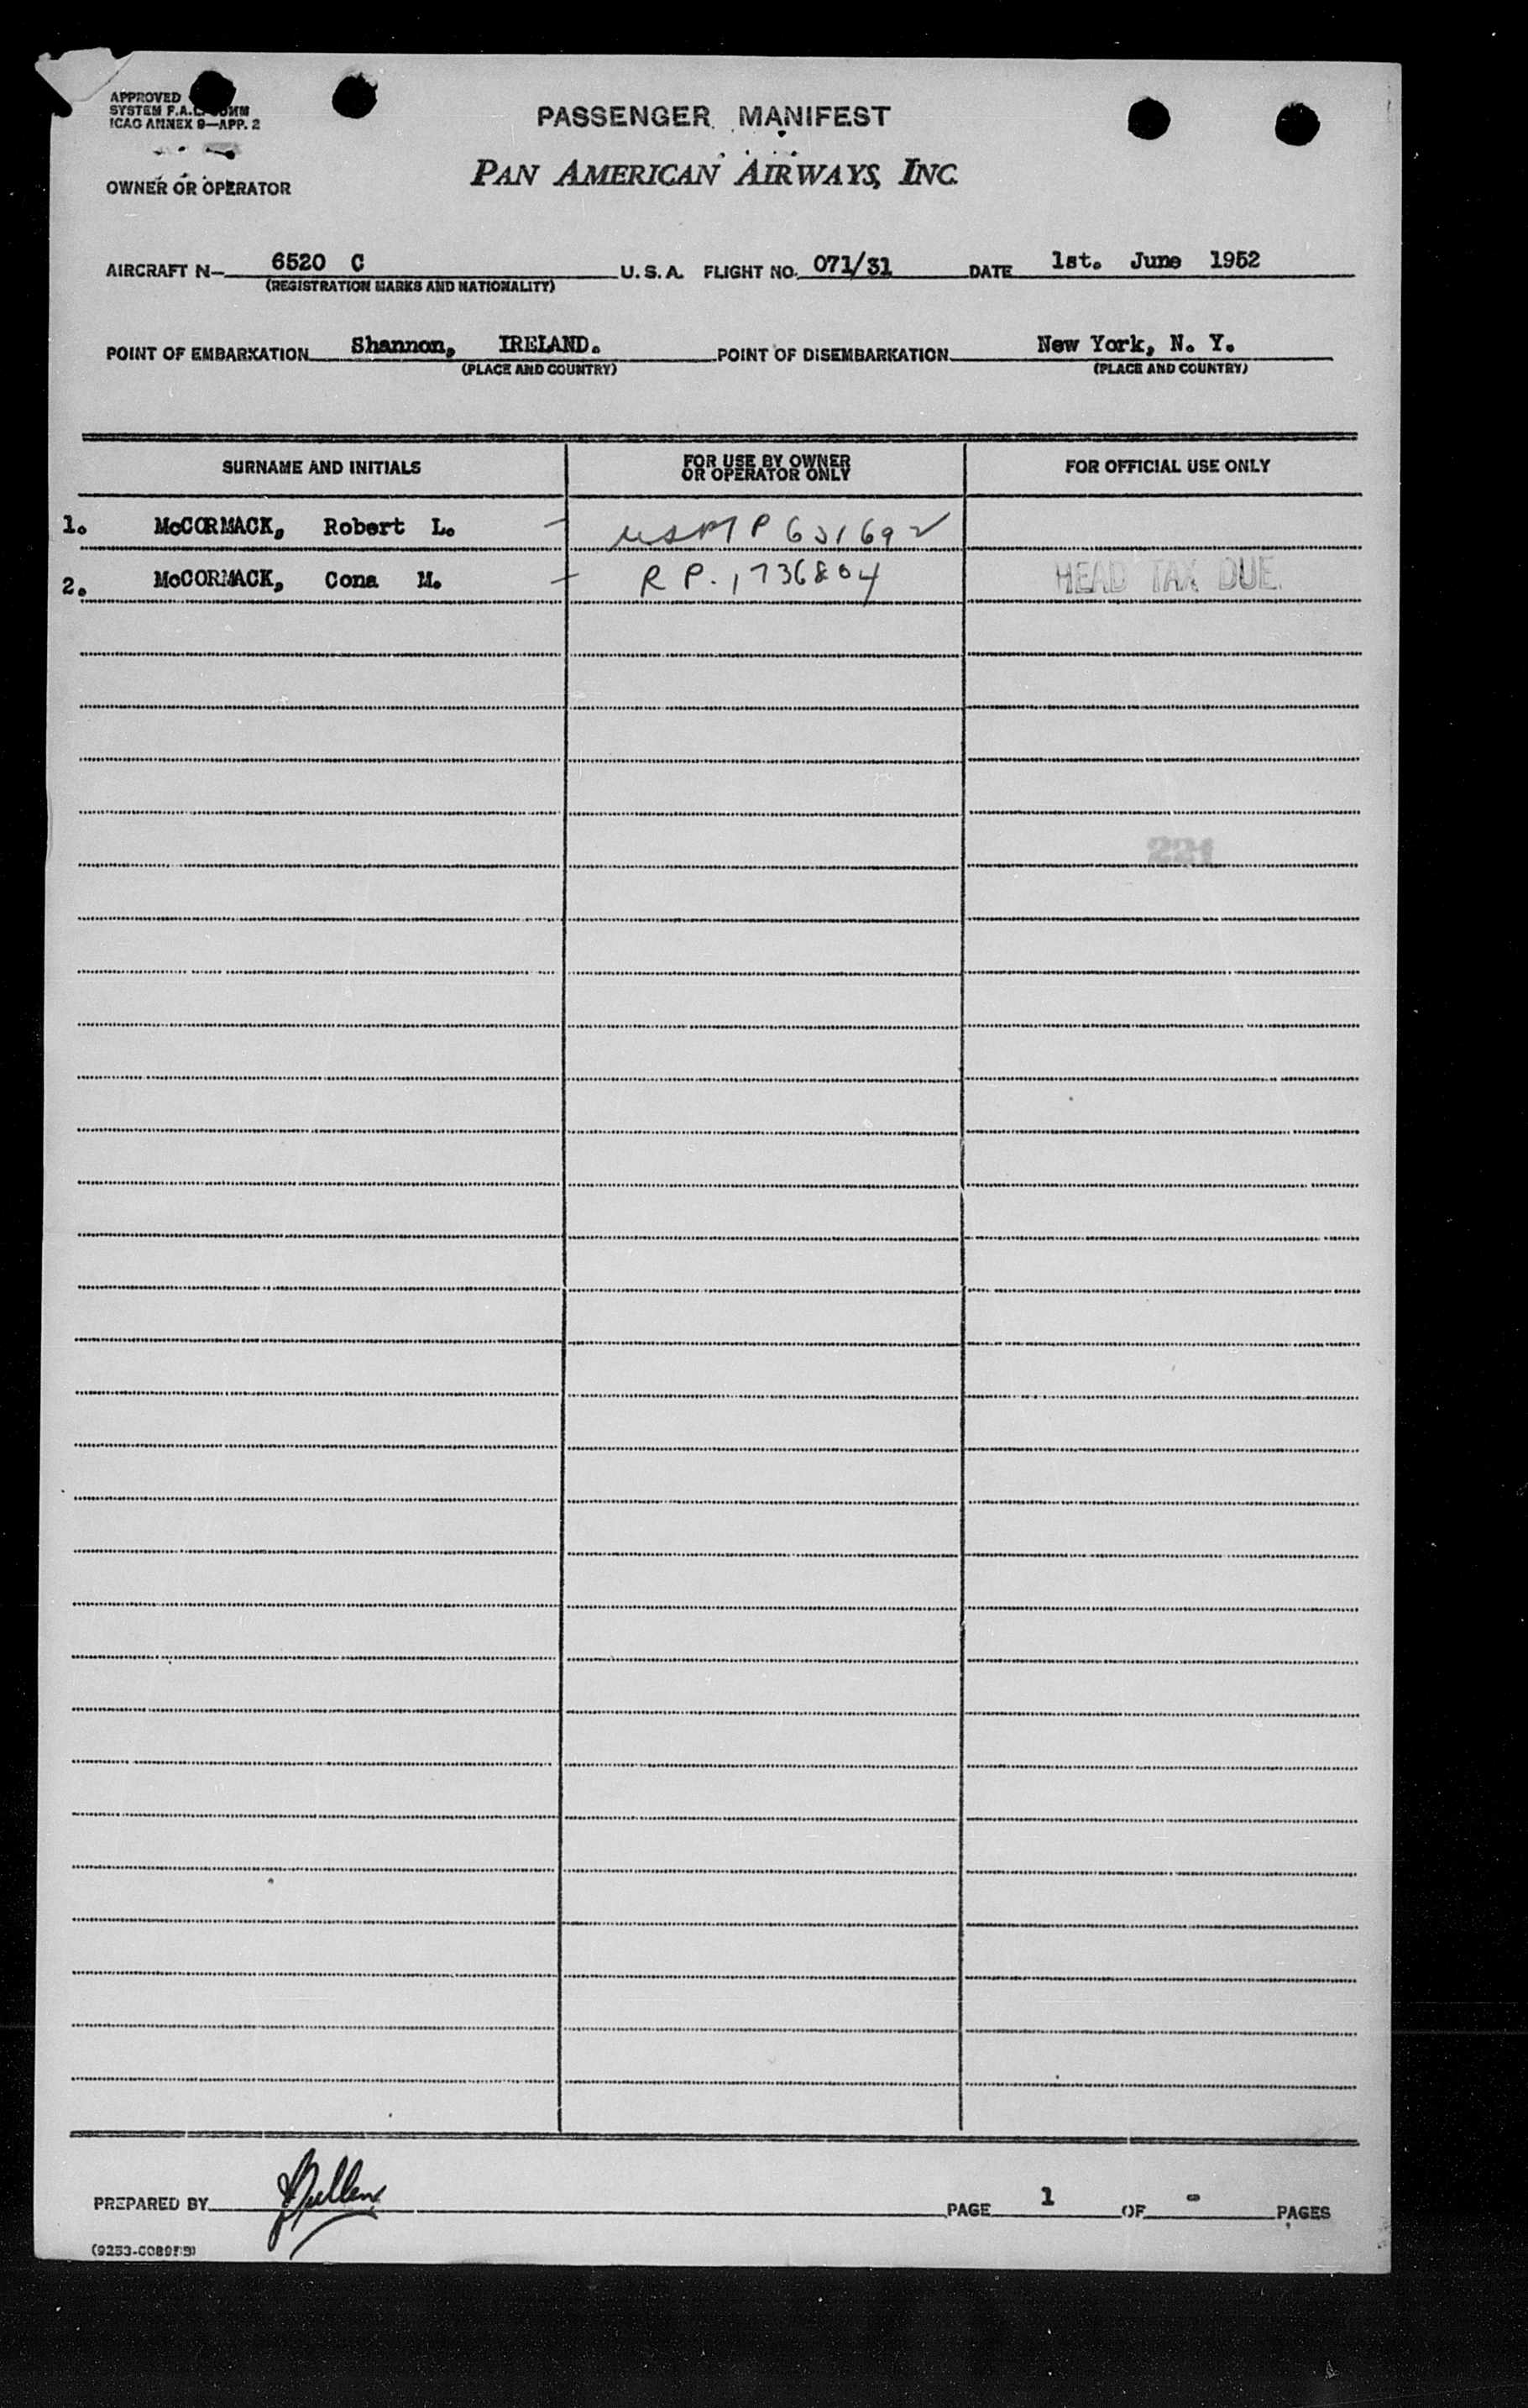 APPROVED
SYSTEM F.A.L. COMM
ICAO ANNEX 9—APP. 2
PASSENGER MANIFEST
OWNER OR OPERATOR
PAN AMERICAN AIRWAYS, INC.
AIRCRAFT N- 6520 C U.S.A. FLIGHT NO. 071/31 DATE 1st. June 1952
(REGISTRATION MARKS AND NATIONALITY)
POINT OF EMBARKATION Shannon, IRELAND. POINT OF DISEMBARKATION New York, N. Y.
(PLACE AND COUNTRY) (PLACE AND COUNTRY)
SURNAME AND INITIALS FOR USE BY OWNER OR OPERATOR ONLY FOR OFFICIAL USE ONLY
1. McCORMACK, Robert L.
2. McCORMACK, Cona M. R P. 1736804 HEAD TAX DUE.
221
PREPARED BY PAGE 1 OF - PAGES